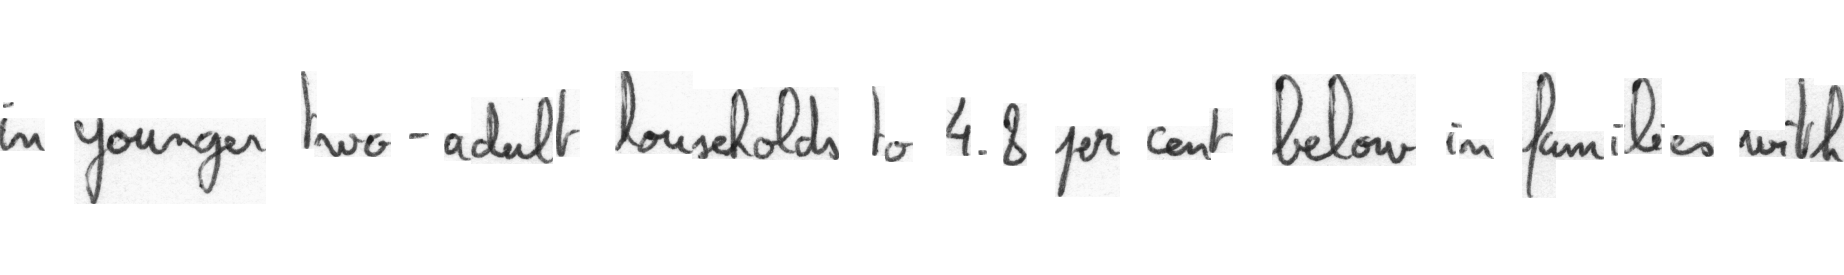 in younger two-adult households to 4.8 per cent below in families with